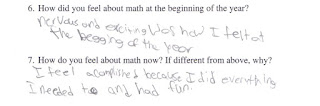 6. How did you feel about math at the beginning of the year?
nervous and exciting was how I felt at
the begging of the year
7. How do you feel about math now? If different from above, why?
I feel acomplished because I did everything
I needed too and had fun.